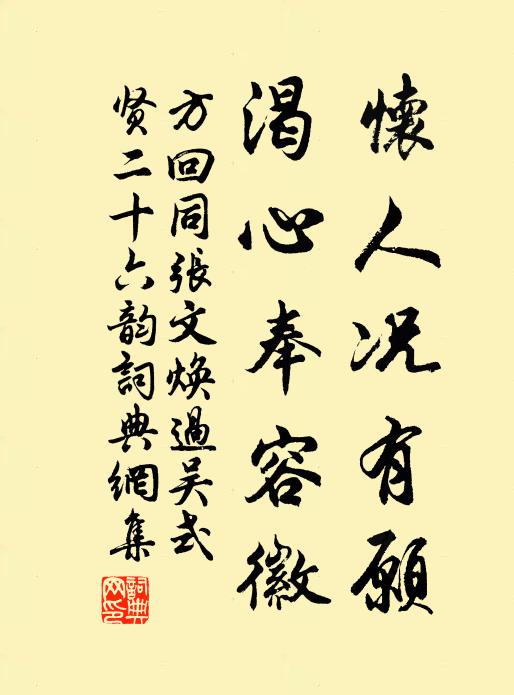 懷人況有願
渴心奉容徽
方回同張文煥過吴式
贤二十六韵詞典網集
詞典網印